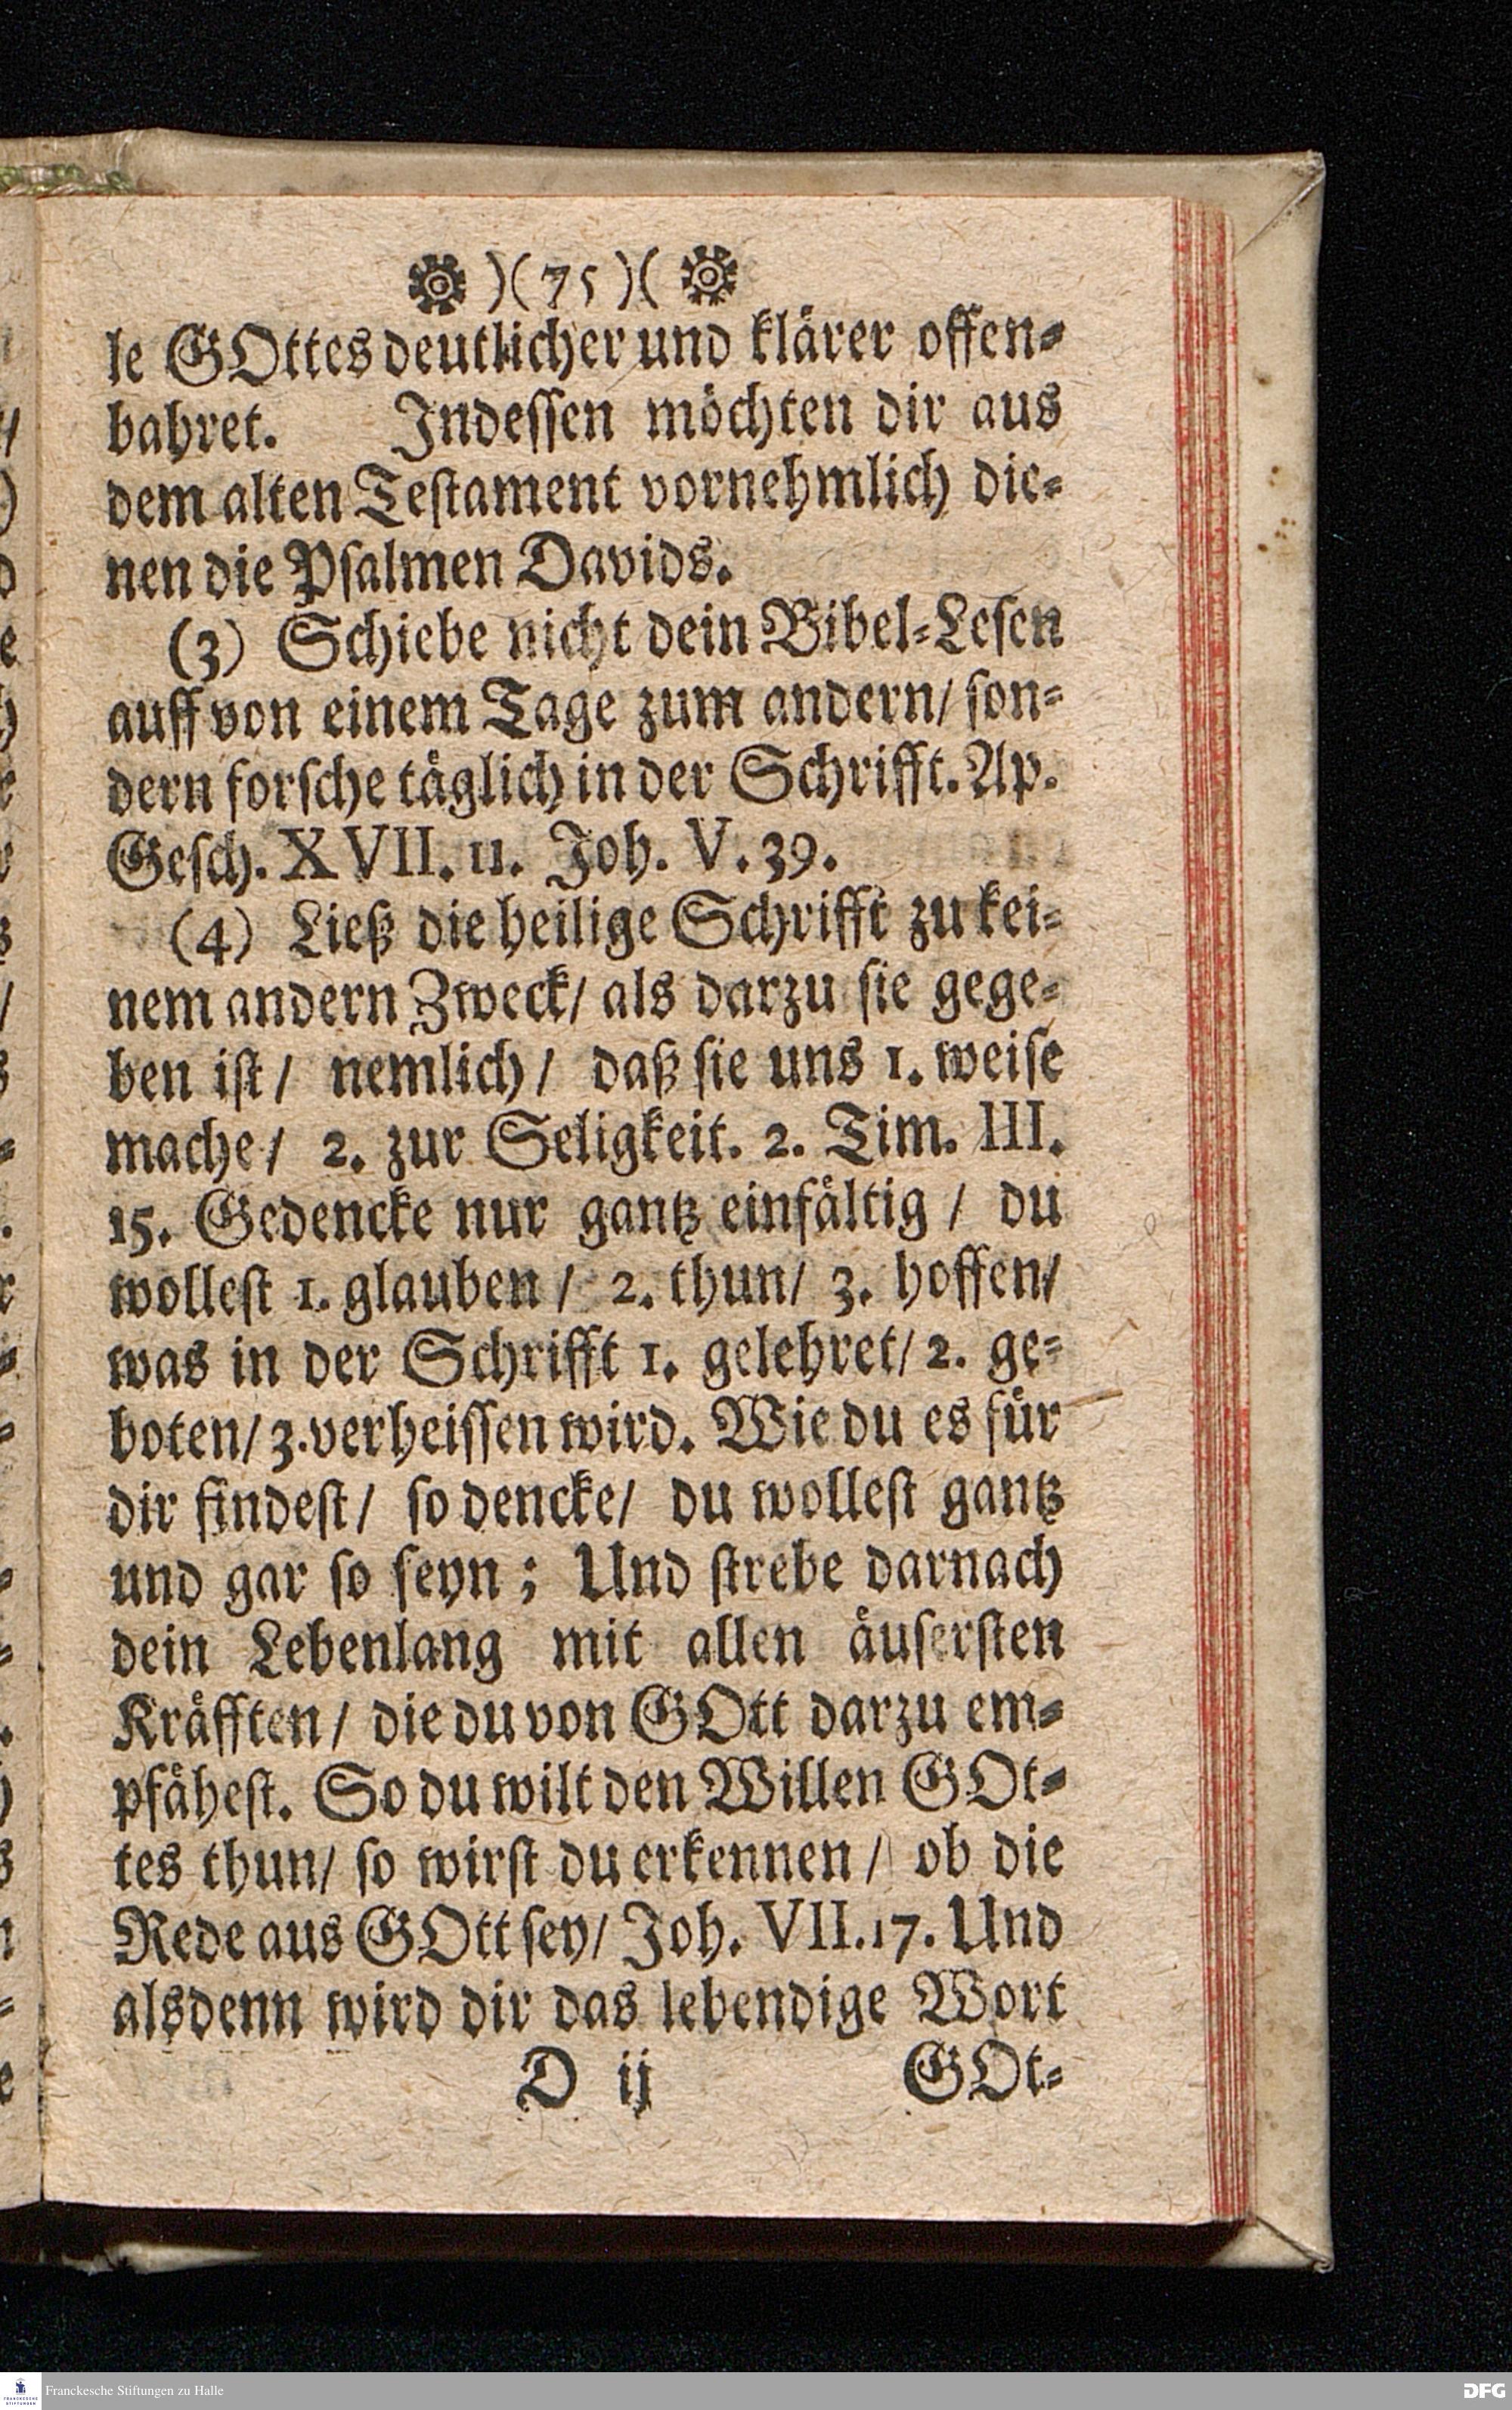 )(75)(
le GOttes deutlicher und klärer offen-
bahret. Indessen möchten dir aus
dem alten Testament vornehmlich die-
nen die Psalmen Davids.
(3) Schiebe nicht dein Bibel-Lesen
auff von einem Tage zum andern/ son-
dern forsche täglich in der Schrifft. Ap.
Gesch. XVII. 11. Joh. V. 39.
(4) Ließ die heilige Schrifft zu kei-
nem andern Zweck/ als darzu sie gege-
ben ist/ nemlich/ daß sie uns 1. weise
mache/ 2. zur Seligkeit. 2. Tim. III.
15. Gedencke nur gantz einfältig / du
wollest 1. glauben / 2. thun/ 3. hoffen/
was in der Schrifft 1. gelehret/ 2. ge-
boten/ 3. verheissen wird. Wie du es für
dir findest/ so dencke/ du wollest gantz
und gar so seyn; Und strebe darnach
dein Lebenlang mit allen äusersten
Kräfften/ die du von GOtt darzu em-
pfähest. So du wilt den Willen GOt-
tes thun/ so wirst du erkennen/ ob die
Rede aus GOtt sey/ Joh. VII. 17. Und
alsdenn wird dir das lebendige Wort
D ij GOt-
Franckesche Stiftungen zu Halle
DFG